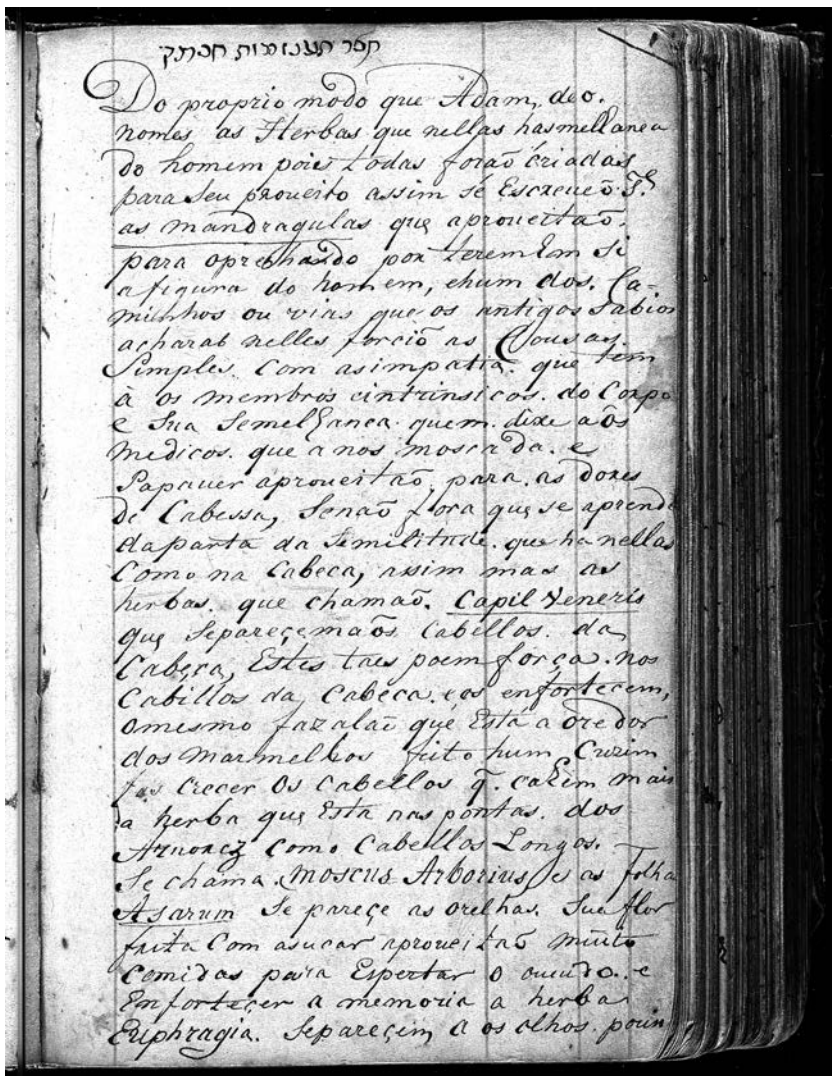 ספר תעלומות חכמה
Do proprio modo que Adam, deo.
nomes as Herbas que nellas hasmellanca
do homem pois todas foraõ criadas
para seu proueito assim se Escreueõ
as mandragulas que aproueitaõ.
para por terem Em si
a figura do homem, ehum dos. Ca-
minhos ou vias que os antigos Sabios
acharaõ nelles as Cousas.
Simples. Com asimpatia. que tem
à os membros eintrinsicos. do Corpo
e Sua Semelhanca. quem. dixe aõs
medicos. que a nos moscada. e
Papauer aproueitaõ, para. as dores
de Cabessa, Senaõ fora que se aprende
daparta da Similitude. que ha nellas
Como na Cabeca, assim mas as
herbas. que chamaõ. Capil Veneris
que Separeçemaõs Cabellos. da
Cabeça, Estes taes poem força. nos
Cabillos da Cabeca. eos enfortecem,
omesmo fazalaã que Está a oredor
dos Marmellos frito hum
fas crecer Os Cabellos q. caẽm mais
a herba que Esta nas pontas. dos
Como Cabellos Longos.
Se chama. Moscus Arborius, e as folha
Asarum Se pareçe as orelhas. Sua flor
frita Com asucar aproueitaõ muito
Comidas para Espertar o ouuido. e
Enforteçer a memoria a herba
Euphragia. Separeçem a os olhos. poim